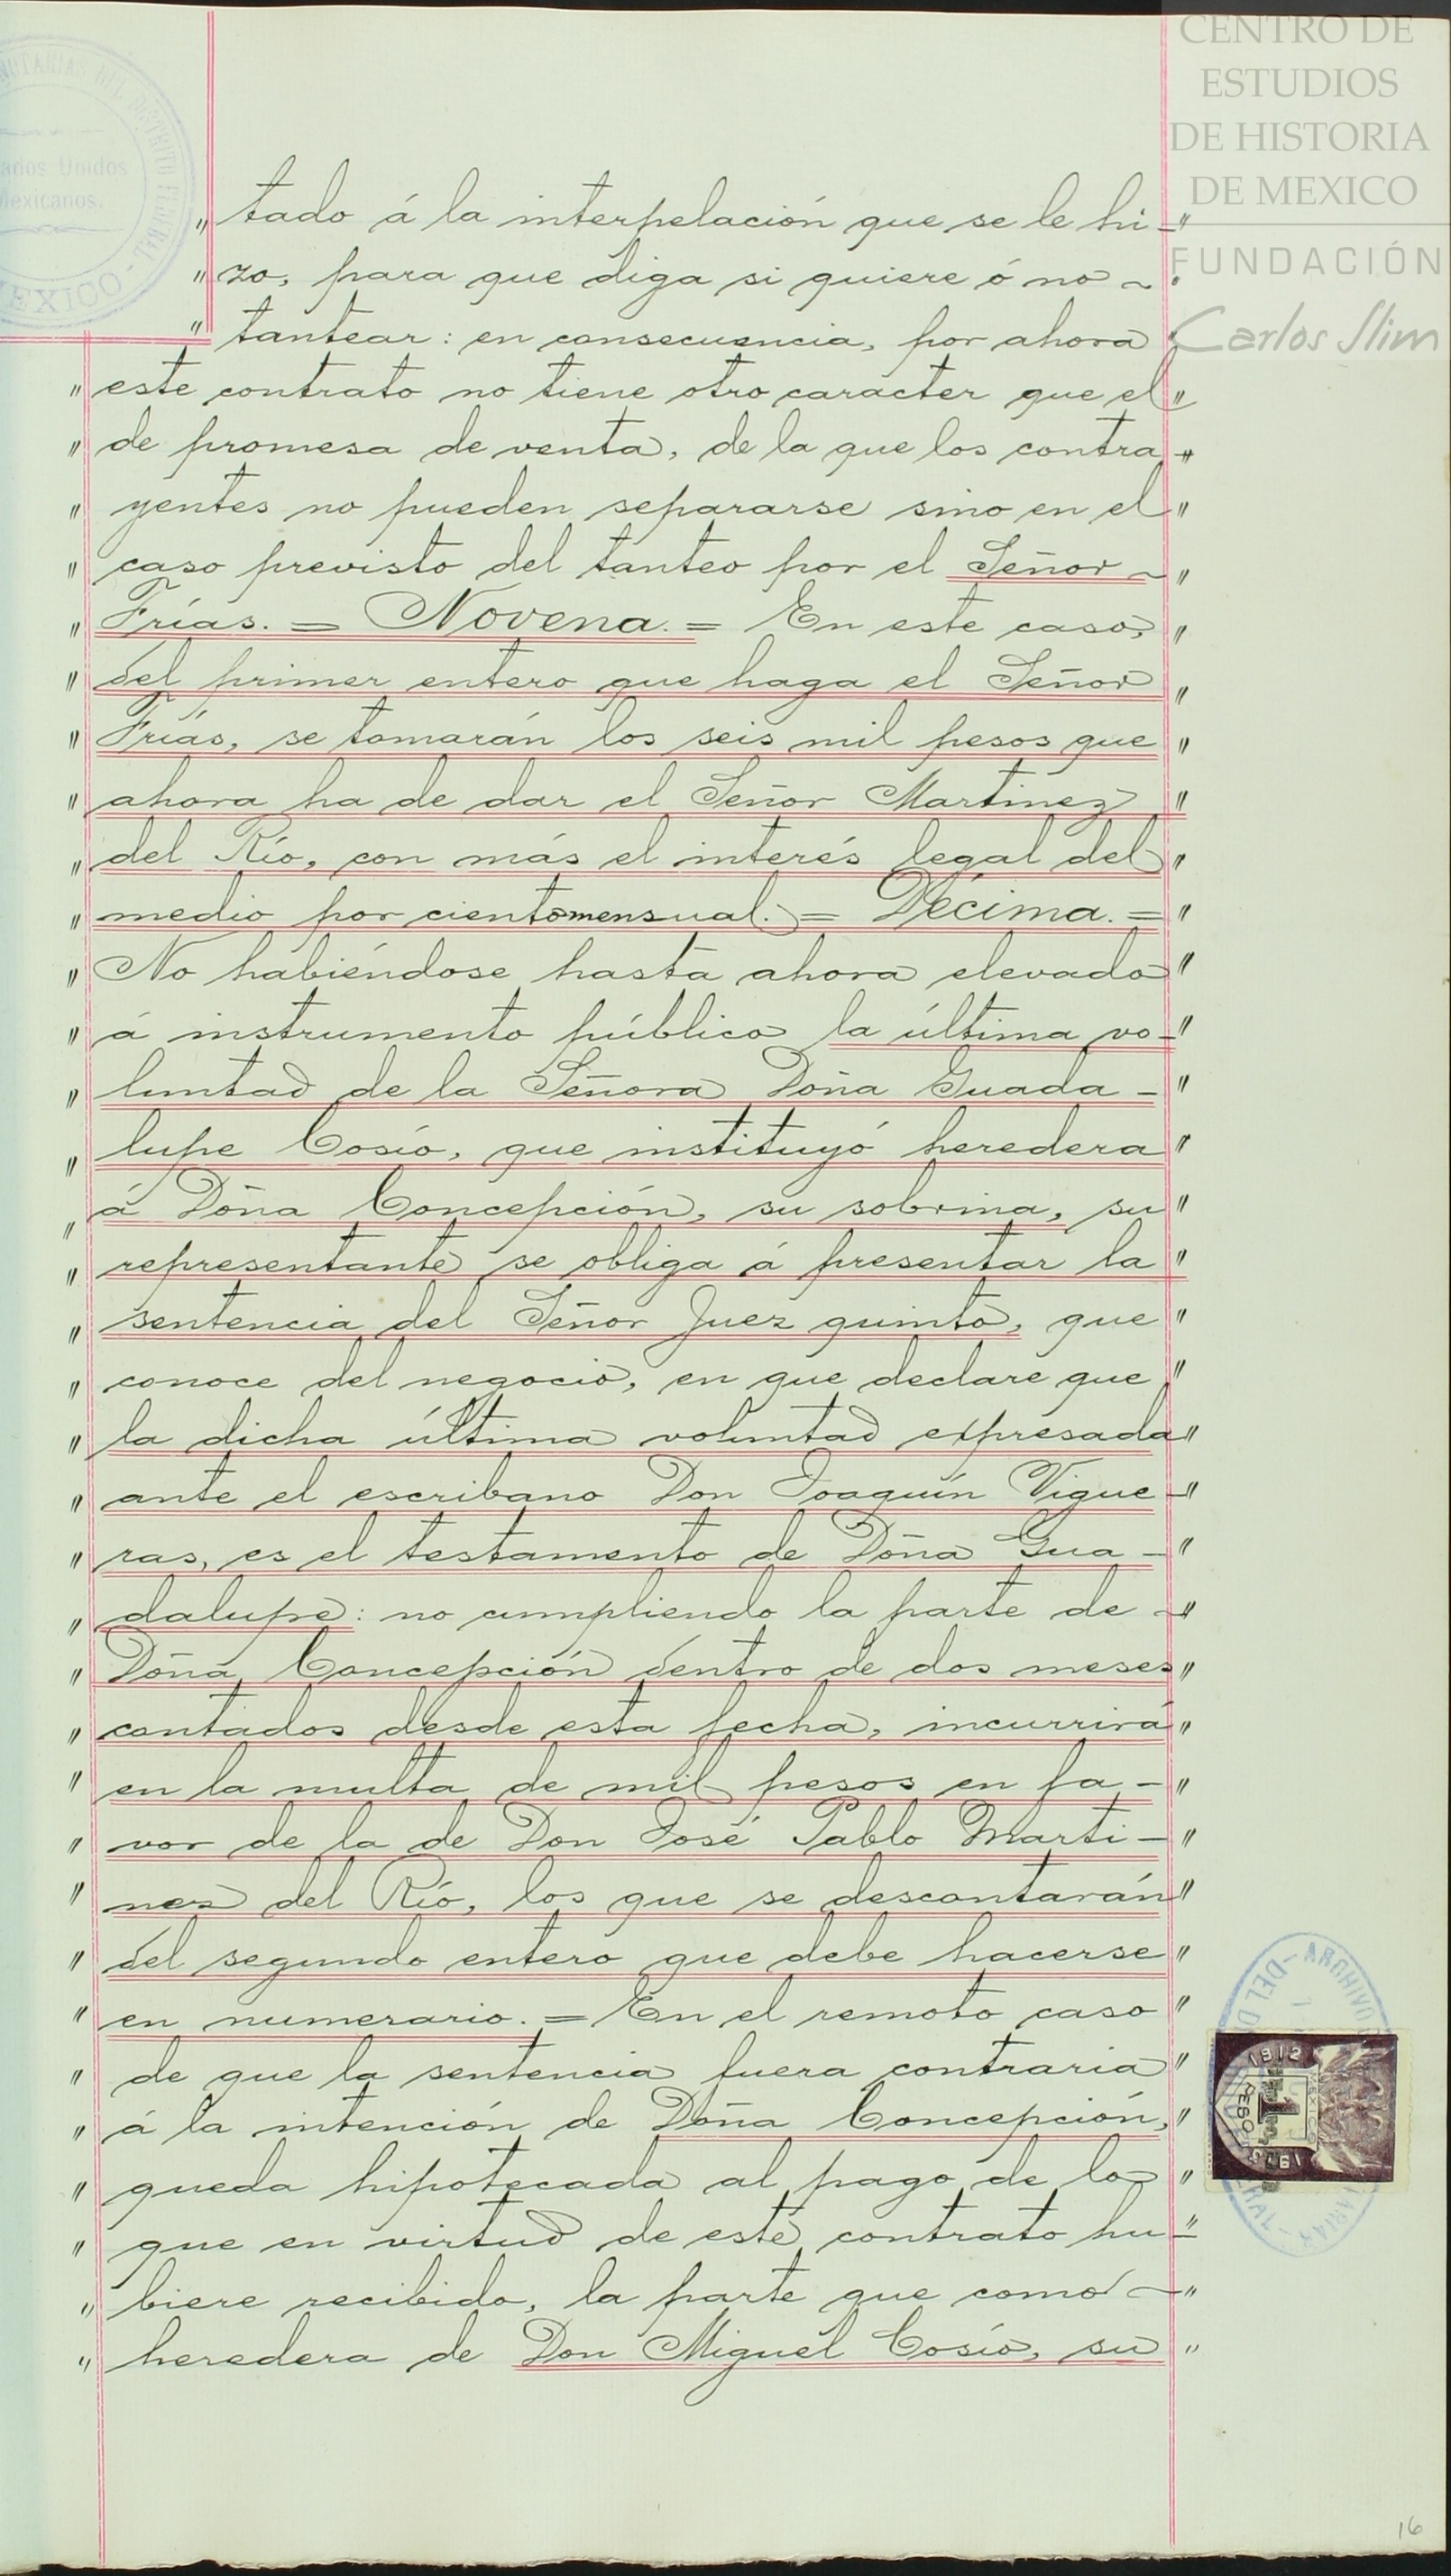 CENTRO DE
ESTUDIOS
DE HISTORIA
DE MEXICO
FUNDACIÓN
Carlos Slim
NOTARIAS DEL DISTRITO FEDERAL - MEXICO
ados Unidos
Mexicanos.
" tado á la interpelación que se le hi- "
" zo, para que diga si quiere ó no ~ "
" tantear: en consecuencia, por ahora "
" este contrato no tiene otro caracter que el "
" de promesa de venta, de la que los contra- "
" yentes no pueden separarse sino en el "
" caso previsto del tanteo por el Señor ~ "
" Frías. = Novena. = En este caso, "
" del primer entero que haga el Señor "
" Frías, se tomarán los seis mil pesos que "
" ahora ha de dar el Señor Martinez "
" del Río, con más el interés legal del "
" medio por ciento mensual. = Décima. = "
" No habiéndose hasta ahora elevado "
" á instrumento público la última vo- "
" luntad de la Señora Doña Guada- "
" lupe Cosío, que instituyó heredera "
" á Doña Concepción, su sobrina, su "
" representante se obliga á presentar la "
" sentencia del Señor Juez quinto, que "
" conoce del negocio, en que declare que "
" la dicha última voluntad expresada "
" ante el escribano Don Joaquín Vigue- "
" ras, es el testamento de Doña Gua- "
" dalupe: no cumpliendo la parte de ~ "
" Doña Concepción dentro de dos meses "
" contados desde esta fecha, incurrirá "
" en la multa de mil pesos en fa- "
" vor de la de Don José Pablo Marti- "
" nez del Río, los que se descontarán "
" del segundo entero que debe hacerse "
" en numerario. = En el remoto caso "
" de que la sentencia fuera contraria "
" á la intención de Doña Concepción, "
" queda hipotecada al pago de lo "
" que en virtud de este contrato hu- "
" biere recibido, la parte que como ~ "
" heredera de Don Miguel Cosío, su "
ARCHIVO
DEL D
1912
MEXICO
1
PESO
1913
16